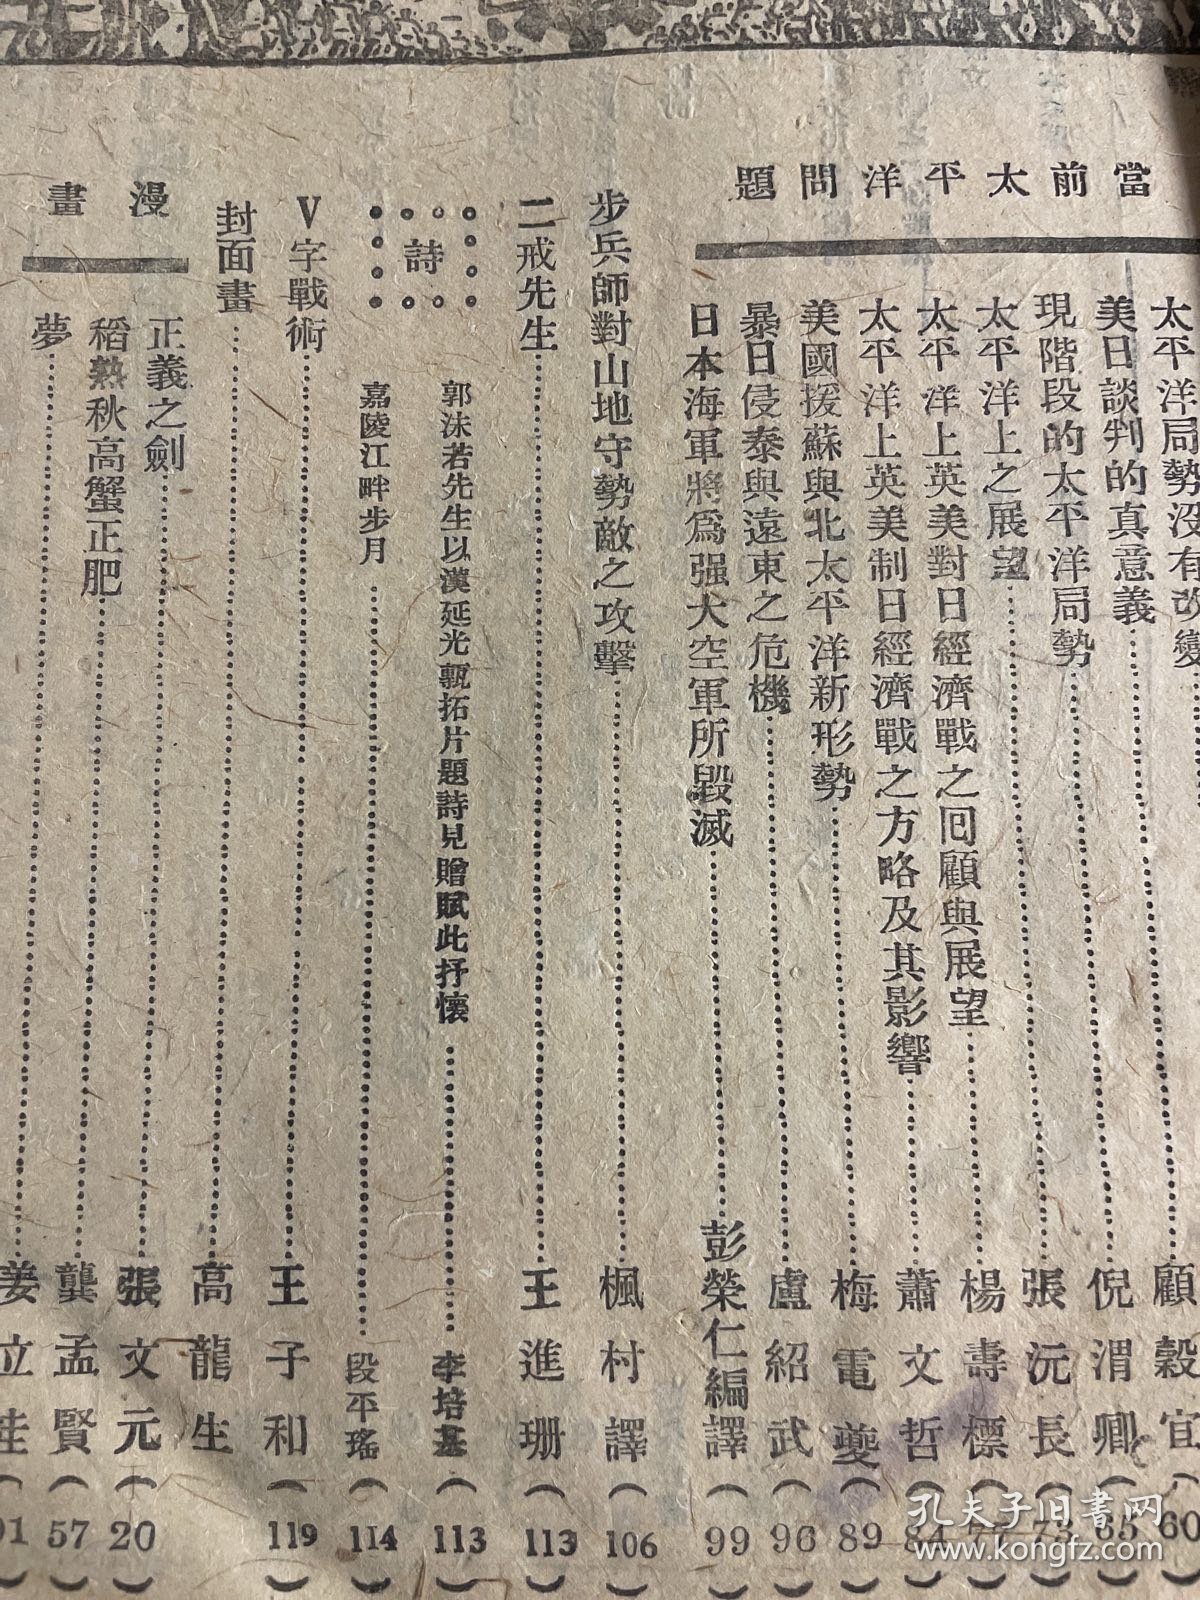 當前太平洋問題
太平洋局勢没有改變 顧穀宜(60)
美日談判的真意義 倪渭卿(65)
現階段的太平洋局勢 張沅長(73)
太平洋上之展望 楊壽標
太平洋上英美對日經濟戰之回顧與展望 蕭文哲(84)
太平洋上英美制日經濟戰之方略及其影響 梅電夔(89)
美國援蘇與北太平洋新形勢 盧紹武(96)
暴日侵泰與遠東之危機
日本海軍將爲强大空軍所毀滅 彭榮仁編譯(99)
步兵師對山地守勢敵之攻擊 楓村譯(106)
二戒先生 王進珊(113)
詩
郭沫若先生以漢延光甎拓片題詩見贈賦此抒懷 李培基(113)
嘉陵江畔步月 段平瑤(114)
V字戰術 王子和(119)
封面畫 高龍生
漫畫
正義之劍 張文元(20)
稻熟秋高蟹正肥 龔孟賢(57)
夢 姜立
孔夫子旧書网
www.kongfz.com